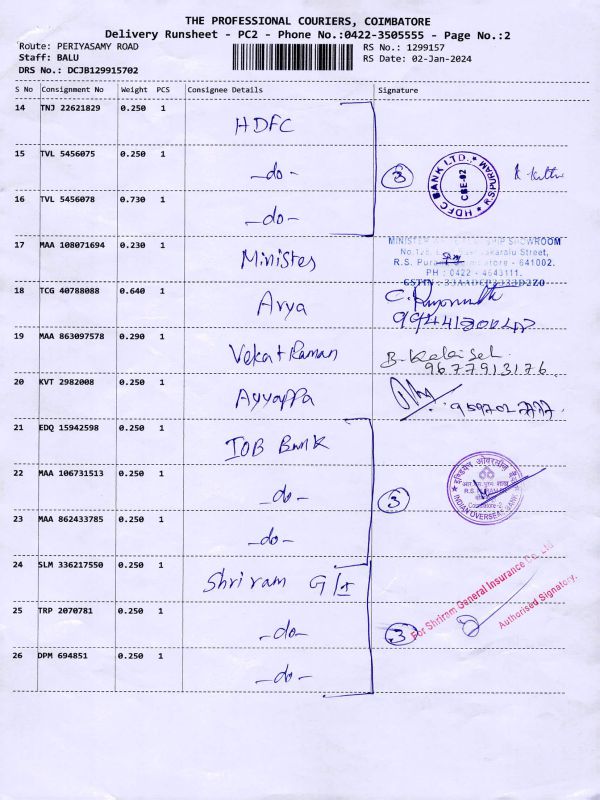 THE PROFESSIONAL COURIERS, COIMBATORE
Delivery Runsheet - PC2 - Phone No.:0422-3505555 - Page No.:2
Route: PERIYASAMY ROAD
RS No.: 1299157
Staff: BALU
RS Date: 02-Jan-2024
DRS No.: DCJB129915702
S No Consignment No Weight PCS Consignee Details Signature
14 TNJ 22621829 0.250 1 HDFC
15 TVL 5456075 0.250 1 -do- 3
HDFC BANK LTD. ★ R.S.PURAM ★
CBE-02
16 TVL 5456078 0.730 1 -do-
17 MAA 108071694 0.230 1 Ministes
SHOWROOM
Street,
R.S. Puram, Coimbatore - 641002.
PH : 0422 - 4643111.
18 TCG 40788088 0.640 1 Arya
19 MAA 863097578 0.290 1 Vekat Raman
9677913176
20 KVT 2982008 0.250 1 Ayyappa
21 EDQ 15942598 0.250 1 IOB Bank
22 MAA 106731513 0.250 1 -do- 3
इण्डियन ओवरसीज़ बैंक
INDIAN OVERSEAS BANK
R.S. PURAM
Coimbatore-2
23 MAA 862433785 0.250 1 -do-
24 SLM 336217550 0.250 1 Shriram G/I
For Shriram General Insurance Co. Ltd
Authorised Signatory.
25 TRP 2070781 0.250 1 -do- 3
26 DPM 694851 0.250 1 -do-